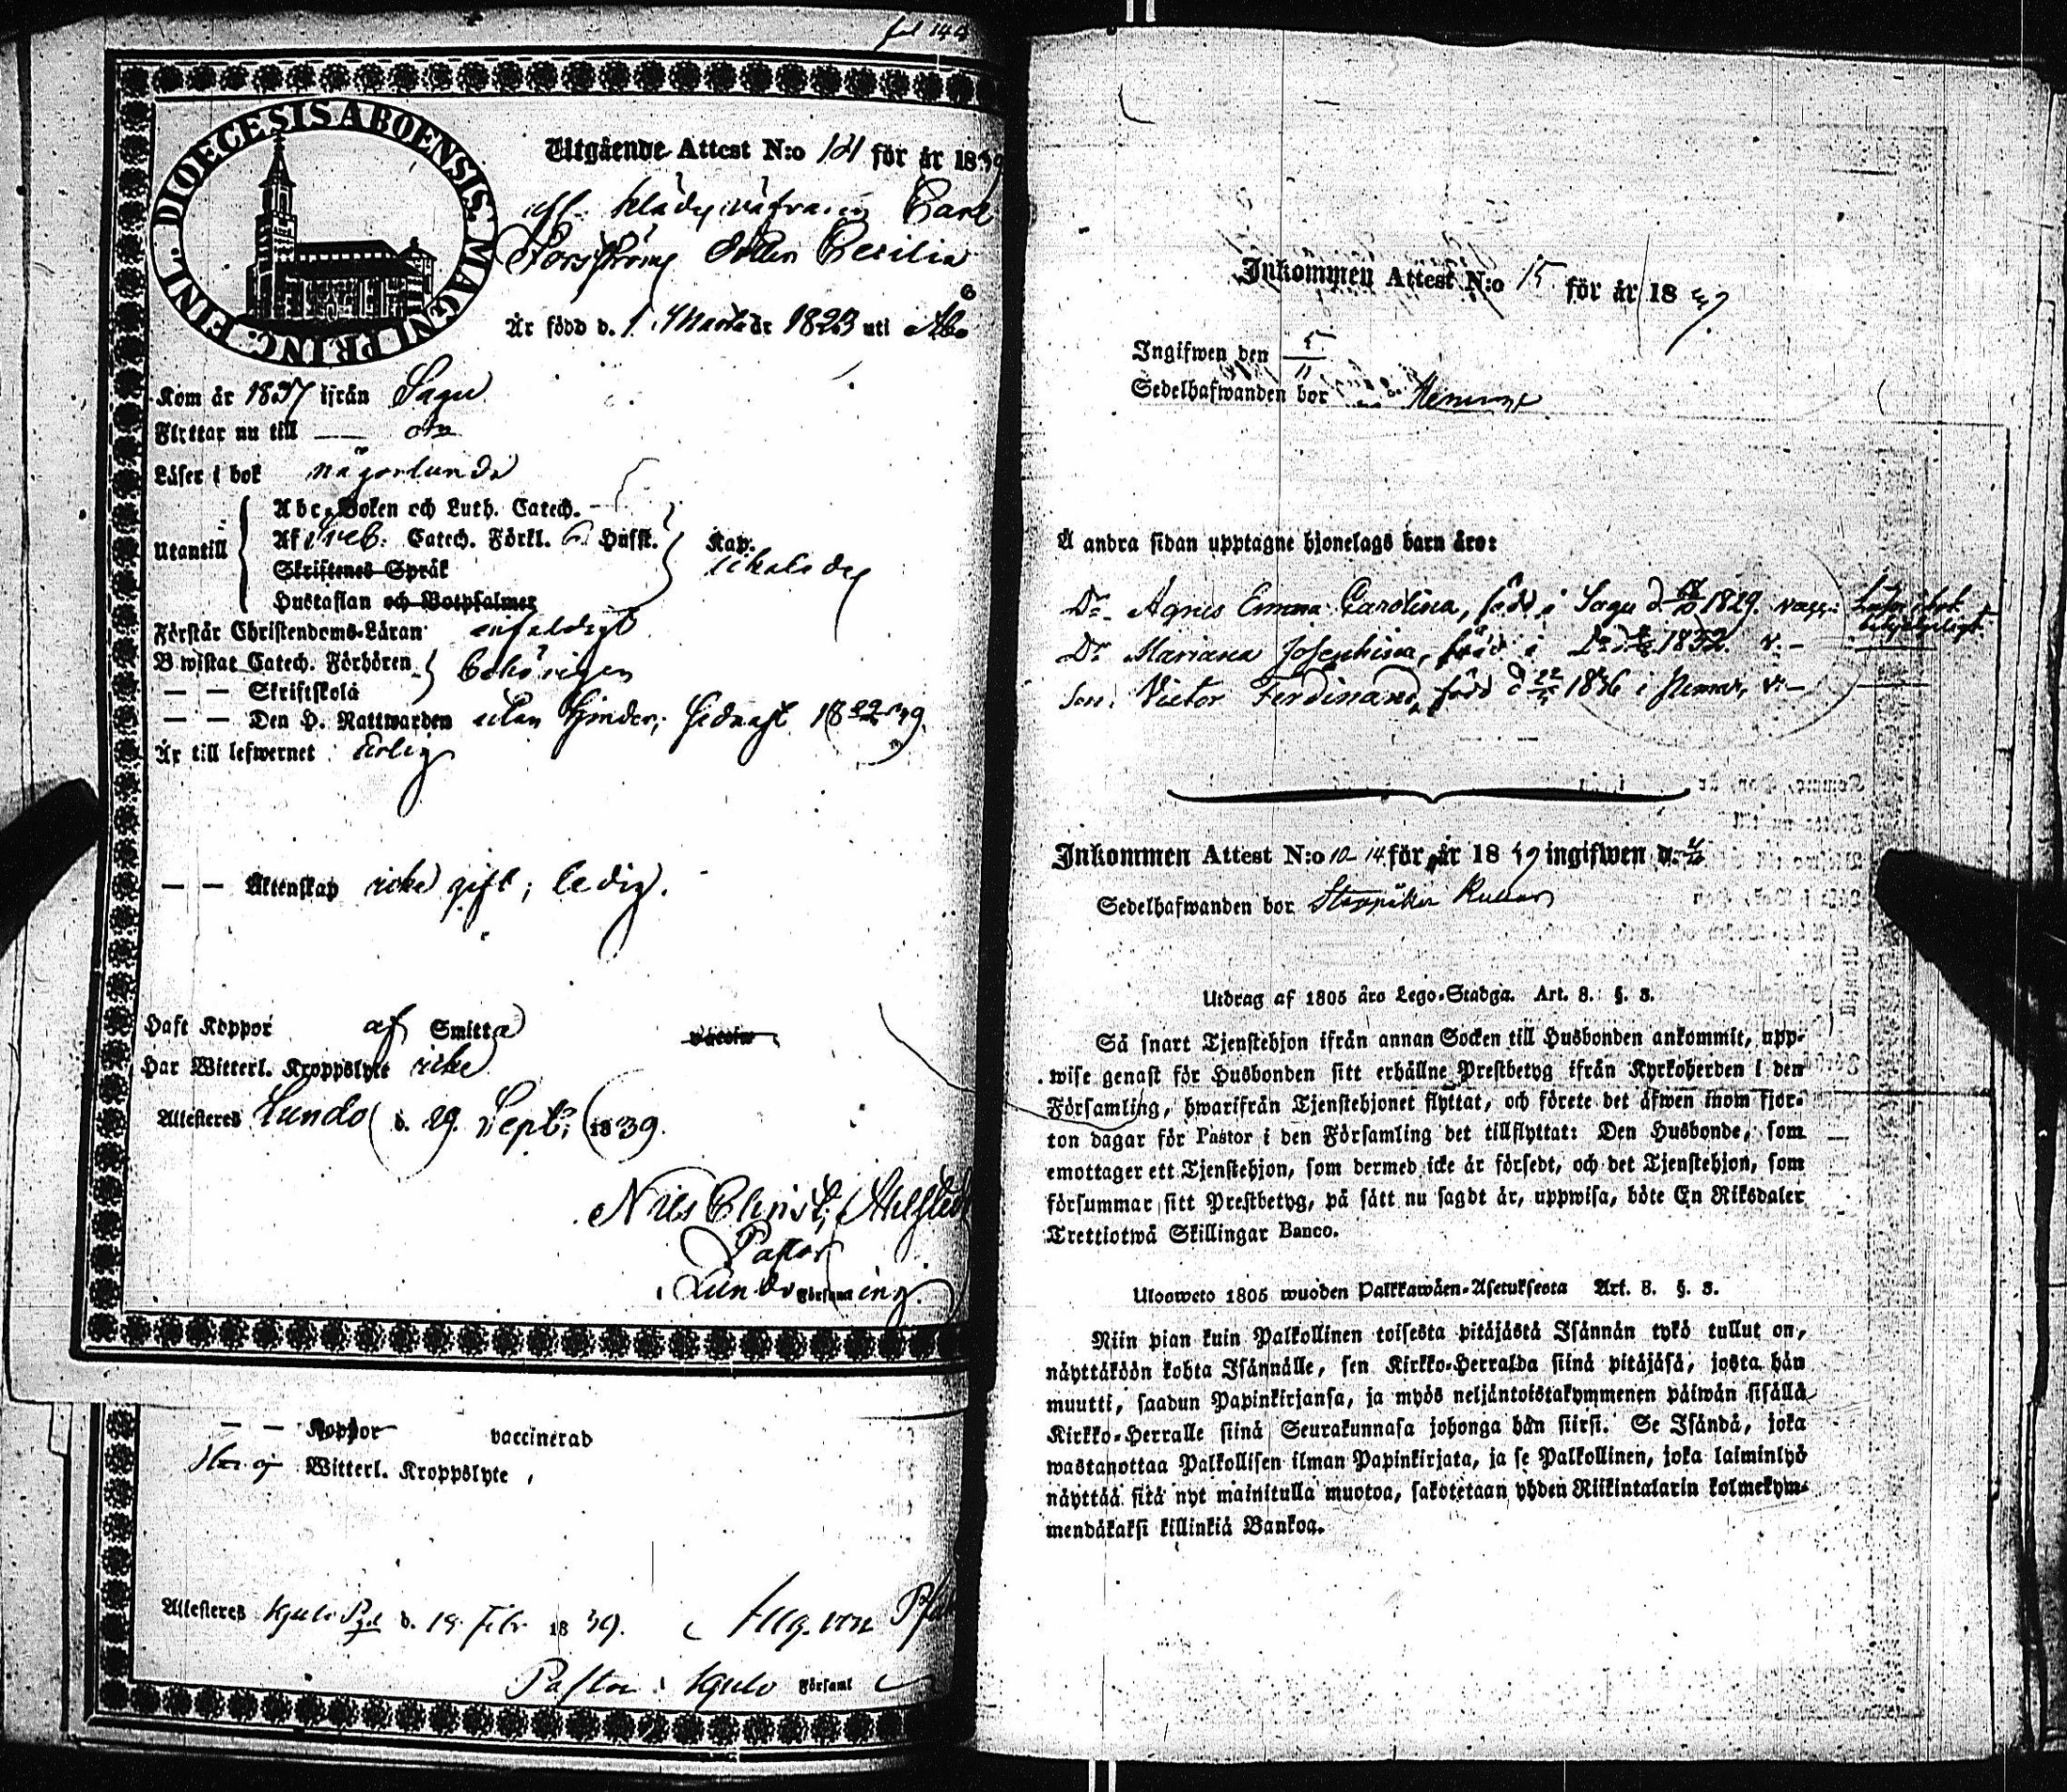 fol 144
DIOECESIS ABOENSIS. MAGNI PRINC. FINL.
Utgående Attest N:o 121 för år 1839
Carl
Forsströms Dotter Cecilia
Är född d. 1 Martii år 1823 uti Åbo
Kom år 1837 ifrån Sagu
Flyttar nu till — do
Läser i bok någorlunda
Abc-Boken och Luth. Catech.
Utantill
Af Sveb. Catech. Förkl. 6 Hufst.
Kap.
Skriftenes Språk
Hustaflan och Botpsalmer
Förstår Christendoms-Läran enfaldigt
Bewistat Catech. Förhören
behörigen
— — Skriftskola
— — Den H. Nattwarden utan hinder, sednast 18 22/9 39.
Är till lefwernet Ärlig
— — Äktenskap icke gift, ledig.
Haft Koppor af Smitta vaccin
Har Witterl. Kroppslyte icke
Attesteres Lundo d. 29 Sept. 1839.
Nils Christ.
Pastor
Lundo Församling.
— — Koppor vaccinerad
Har ej Witterl. Kroppslyte
Attesteres Kjulo d. 19 Febr. 1839. Aug. von
Pastor i Kjulo Församl
Inkommen Attest N:o 15 för år 1839
Ingifwen den 5
Sedelhafwanden bor
Å andra sidan upptagne hjonelags barn äro:
Dr. Agnes Emma Carolina, född i Sagu d. 1829. vacc. Läser i bok
Dr Mariana Josephina, född i Do d. 1832. v. —
Son: Victor Ferdinand, född d 22 1836 i Nemar, v. —
Inkommen Attest N:o 10-14 för år 1839 ingifwen d.
Sedelhafwanden bor
Utdrag af 1805 års Lego-Stadga. Art. 8. §. 3.
Så snart Tjenstehjon ifrån annan Socken till Husbonden ankommit, upp-
wise genast för Husbonden sitt erhållne Prestbetyg ifrån Kyrkoherden i den
Församling, hwarifrån Tjenstehjonet flyttat, och förete det äfwen inom fjor-
ton dagar för Pastor i den Församling det tillflyttat: Den Husbonde, som
emottager ett Tjenstehjon, som dermed icke är försedt, och det Tjenstehjon, som
försummar sitt Prestbetyg, på sätt nu sagdt är, uppwisa, böte En Riksdaler
Trettiotwå Skillingar Banco.
Uloosweto 1805 wuoden Palkkawäen-Asetuksesta Art. 8. §. 3.
Niin pian kuin Palkollinen toisesta pitäjästä Isännän tykö tullut on,
näyttäköön kohta Isännälle, sen Kirkko-Herralda siinä pitäjäsä, josta hän
muutti, saadun Papinkirjansa, ja myös neljäntoistakymmenen päiwän sisällä
Kirkko-Herralle siinä Seurakunnasa johonga hän siirsi. Se Isändä, joka
wastanottaa Palkollisen ilman Papinkirjata, ja se Palkollinen, joka laiminlyö
näyttää sitä nyt mainitulla muotoa, sakotetaan yhden Riikintalarin kolmekym-
mendäkaksi killinkiä Bankoa.